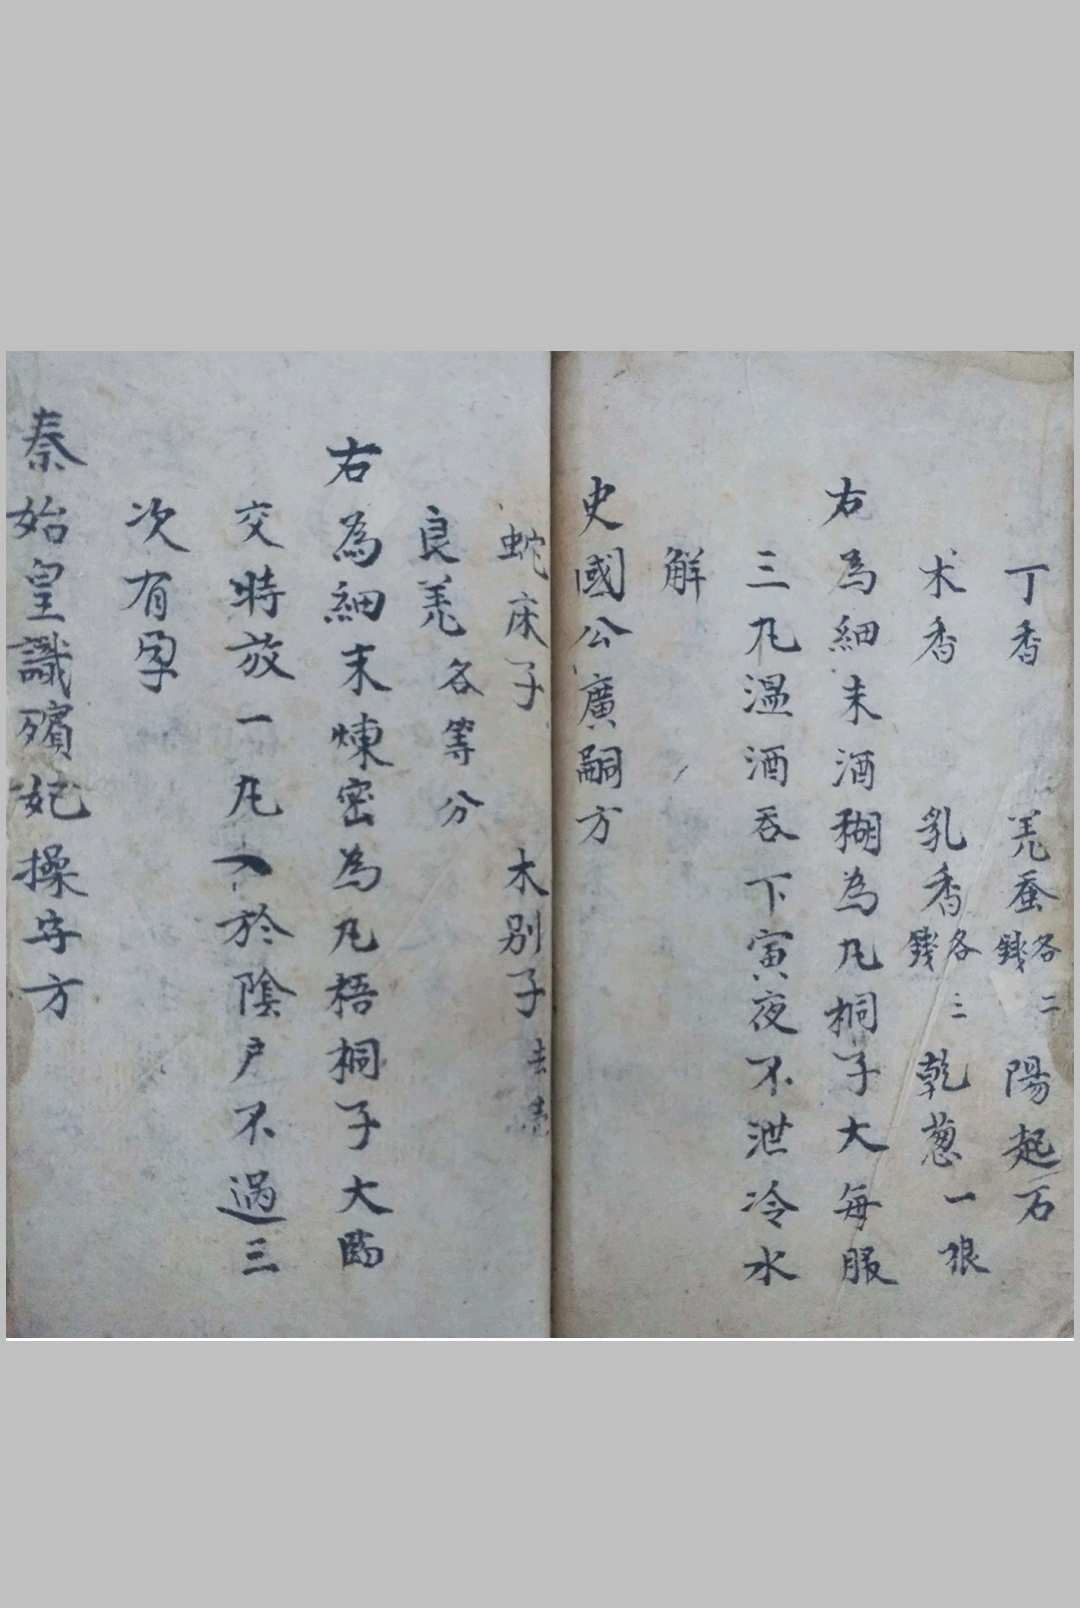 丁香 羌蚕各二錢 陽起石
木香 乳香各三錢 乾葱一狼
右為細末酒糊為凡桐子大每服
三凡溫酒吞下寅夜不泄冷水
解
史國公廣嗣方
蛇床子 木別子去壳
良羌各等分
右為細末煉密為凡梧桐子大臨
交時放一凡入於陰戶不過三
次有孕
秦始皇識殯妃操守方